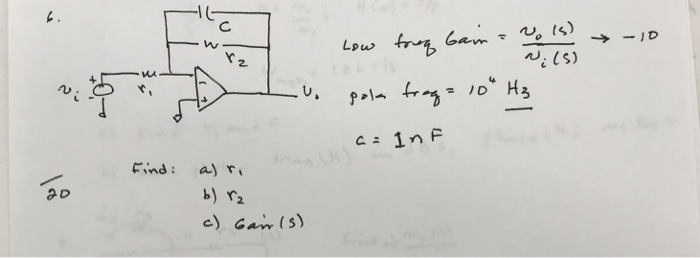 6.
C
r₂
r₁
vᵢ
+
-
-
+
vₒ
Low freq Gain = vₒ(s) / vᵢ(s) → -10
pole freq = 10⁴ Hz
C = 1nF
/20
Find: a) r₁
b) r₂
c) Gain(s)